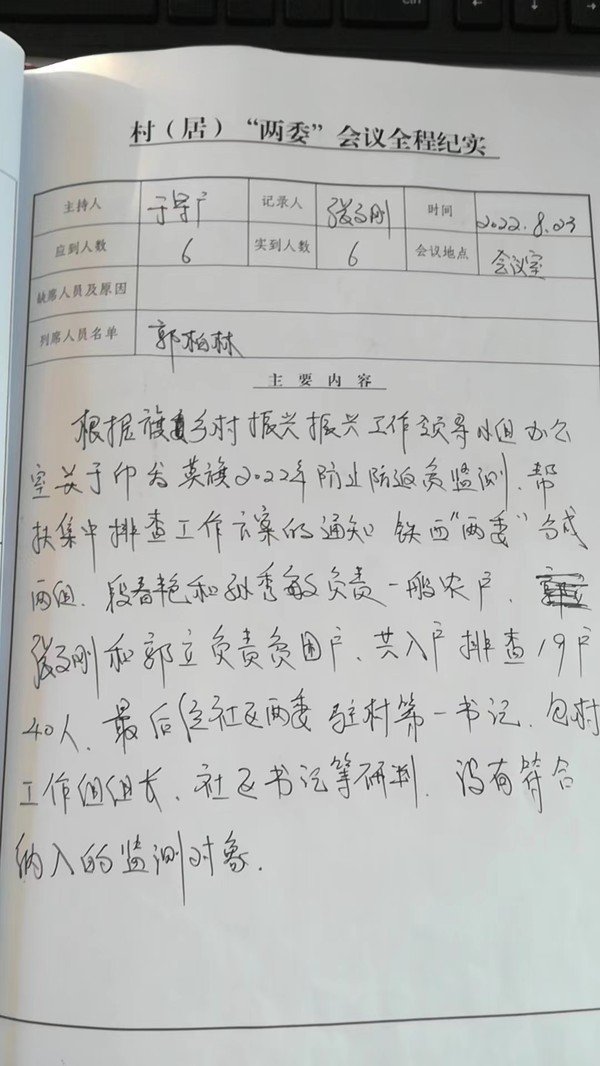 村（居）“两委”会议全程纪实
主持人 于 记录人 张 刚 时间 2022.8.23
应到人数 6 实到人数 6 会议地点 会议室
缺席人员及原因
列席人员名单 郭柏林
主要内容
根据旗乡村振兴振兴工作领导小组办公
室关于印发莫旗2022年防止防返贫监测、帮
扶集中排查工作方案的通知 铁西“两委”分成
两组、段春艳和孙秀敏负责一般农户、
张 刚和郭立负责贫困户、共入户排查19户
40人、最后经社区两委 驻村第一书记、包村
工作组组长、社区书记等研判、没有符合
纳入的监测对象.